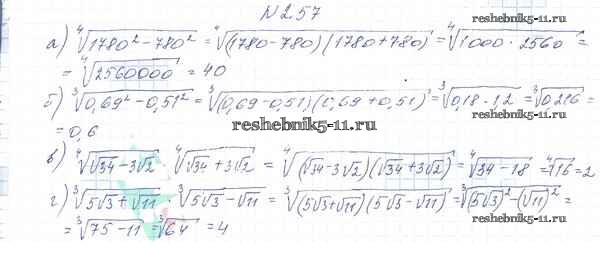 №2.57
reshebnik5-11.ru
а) ∜(1780² - 780²) = ∜((1780 - 780)(1780 + 780)) = ∜(1000 · 2560) =
= ∜2560000 = 40
б) ∛(0,69² - 0,51²) = ∛((0,69 - 0,51)(0,69 + 0,51)) = ∛(0,18 · 1,2) = ∛0,216 =
= 0,6
reshebnik5-11.ru
в) ∜(√34 - 3√2) ∜(√34 + 3√2) = ∜((√34 - 3√2)(√34 + 3√2)) = ∜(34 - 18) = ∜16 = 2
г) ∛(5√3 + √11) · ∛(5√3 - √11) = ∛((5√3 + √11)(5√3 - √11)) = ∛((5√3)² - (√11)²) =
= ∛(75 - 11) = ∛64 = 4
reshebnik5-11.ru